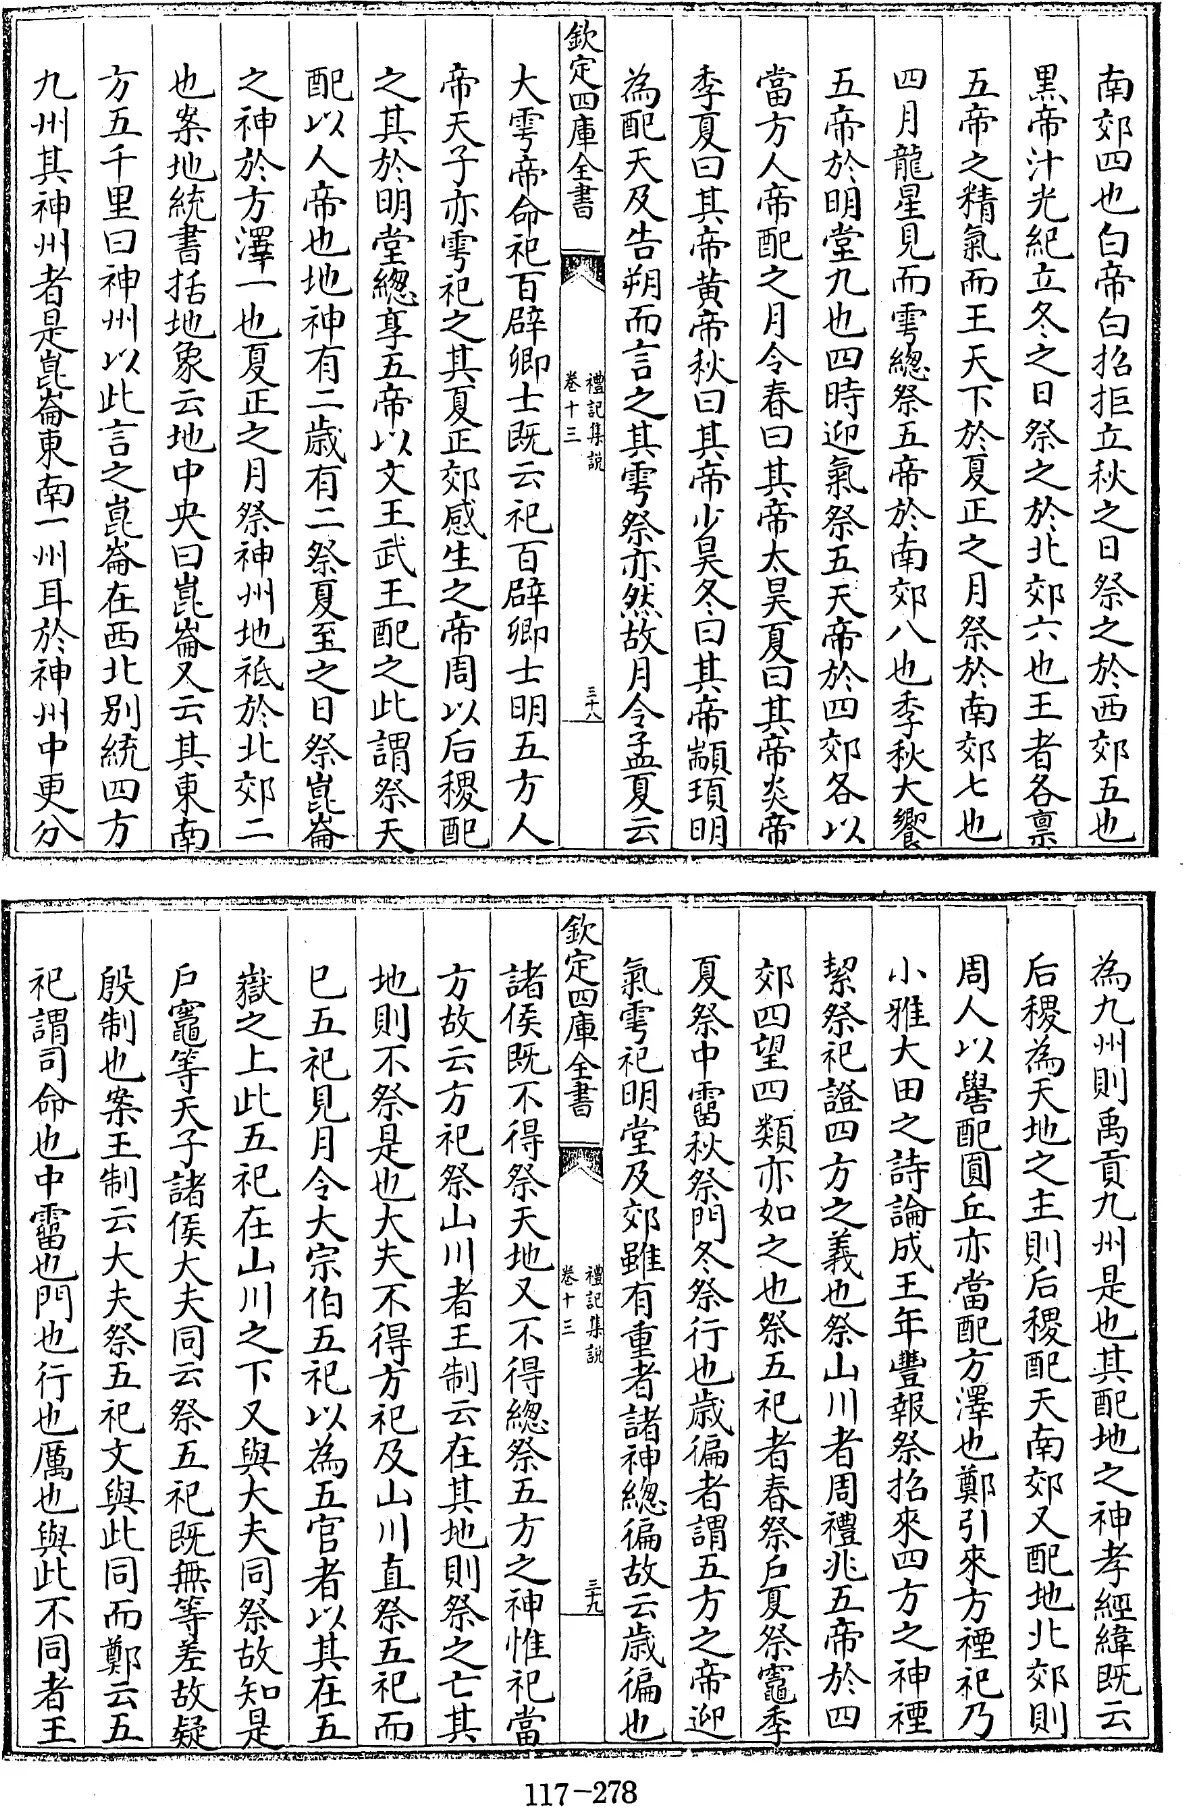 南郊四也白帝白招拒立秋之日祭之於西郊五也
黒帝汁光紀立冬之日祭之於北郊六也王者各禀
五帝之精氣而王天下於夏正之月祭於南郊七也
四月龍星見而雩總祭五帝於南郊八也季秋大饗
五帝於明堂九也四時迎氣祭五天帝於四郊各以
當方人帝配之月令春曰其帝太昊夏曰其帝炎帝
季夏曰其帝黄帝秋曰其帝少昊冬曰其帝顓頊明
為配天及告朔而言之其雩祭亦然故月令孟夏云
欽定四庫全書
禮記集說
卷十三
三十八
大雩帝命祀百辟卿士既云祀百辟卿士明五方人
帝天子亦雩祀之其夏正郊感生之帝周以后稷配
之其於明堂總享五帝以文王武王配之此謂祭天
配以人帝也地神有二歳有二祭夏至之日祭崑崙
之神於方澤一也夏正之月祭神州地祗於北郊二
也案地統書括地象云地中央曰崑崙又云其東南
方五千里曰神州以此言之崑崙在西北别統四方
九州其神州者是崑崙東南一州耳於神州中更分
為九州則禹貢九州是也其配地之神孝經緯既云
后稷為天地之主則后稷配天南郊又配地北郊則
周人以嚳配圓丘亦當配方澤也鄭引來方禋祀乃
小雅大田之詩論成王年豐報祭招來四方之神禋
絜祭祀證四方之義也祭山川者周禮兆五帝於四
郊四望四類亦如之也祭五祀者春祭戶夏祭竈季
夏祭中霤秋祭門冬祭行也歳徧者謂五方之帝迎
氣雩祀明堂及郊雖有重者諸神總徧故云歳徧也
欽定四庫全書
禮記集說
卷十三
三十九
諸侯既不得祭天地又不得總祭五方之神惟祀當
方故云方祀祭山川者王制云在其地則祭之亡其
地則不祭是也大夫不得方祀及山川直祭五祀而
已五祀見月令大宗伯五祀以為五官者以其在五
嶽之上此五祀在山川之下又與大夫同祭故知是
戶竈等天子諸侯大夫同云祭五祀既無等差故疑
殷制也案王制云大夫祭五祀文與此同而鄭云五
祀謂司命也中霤也門也行也厲也與此不同者王
117-278